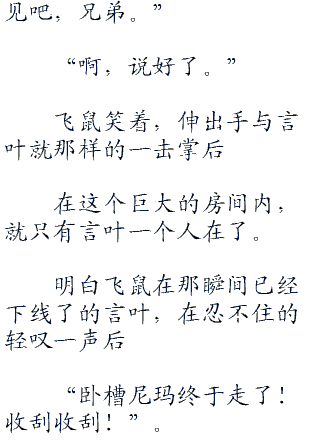 见吧，兄弟。”
“啊，说好了。”
飞鼠笑着，伸出手与言
叶就那样的一击掌后
在这个巨大的房间内，
就只有言叶一个人在了。
明白飞鼠在那瞬间已经
下线了的言叶，在忍不住的
轻叹一声后
“卧槽尼玛终于走了！
收刮收刮！”。